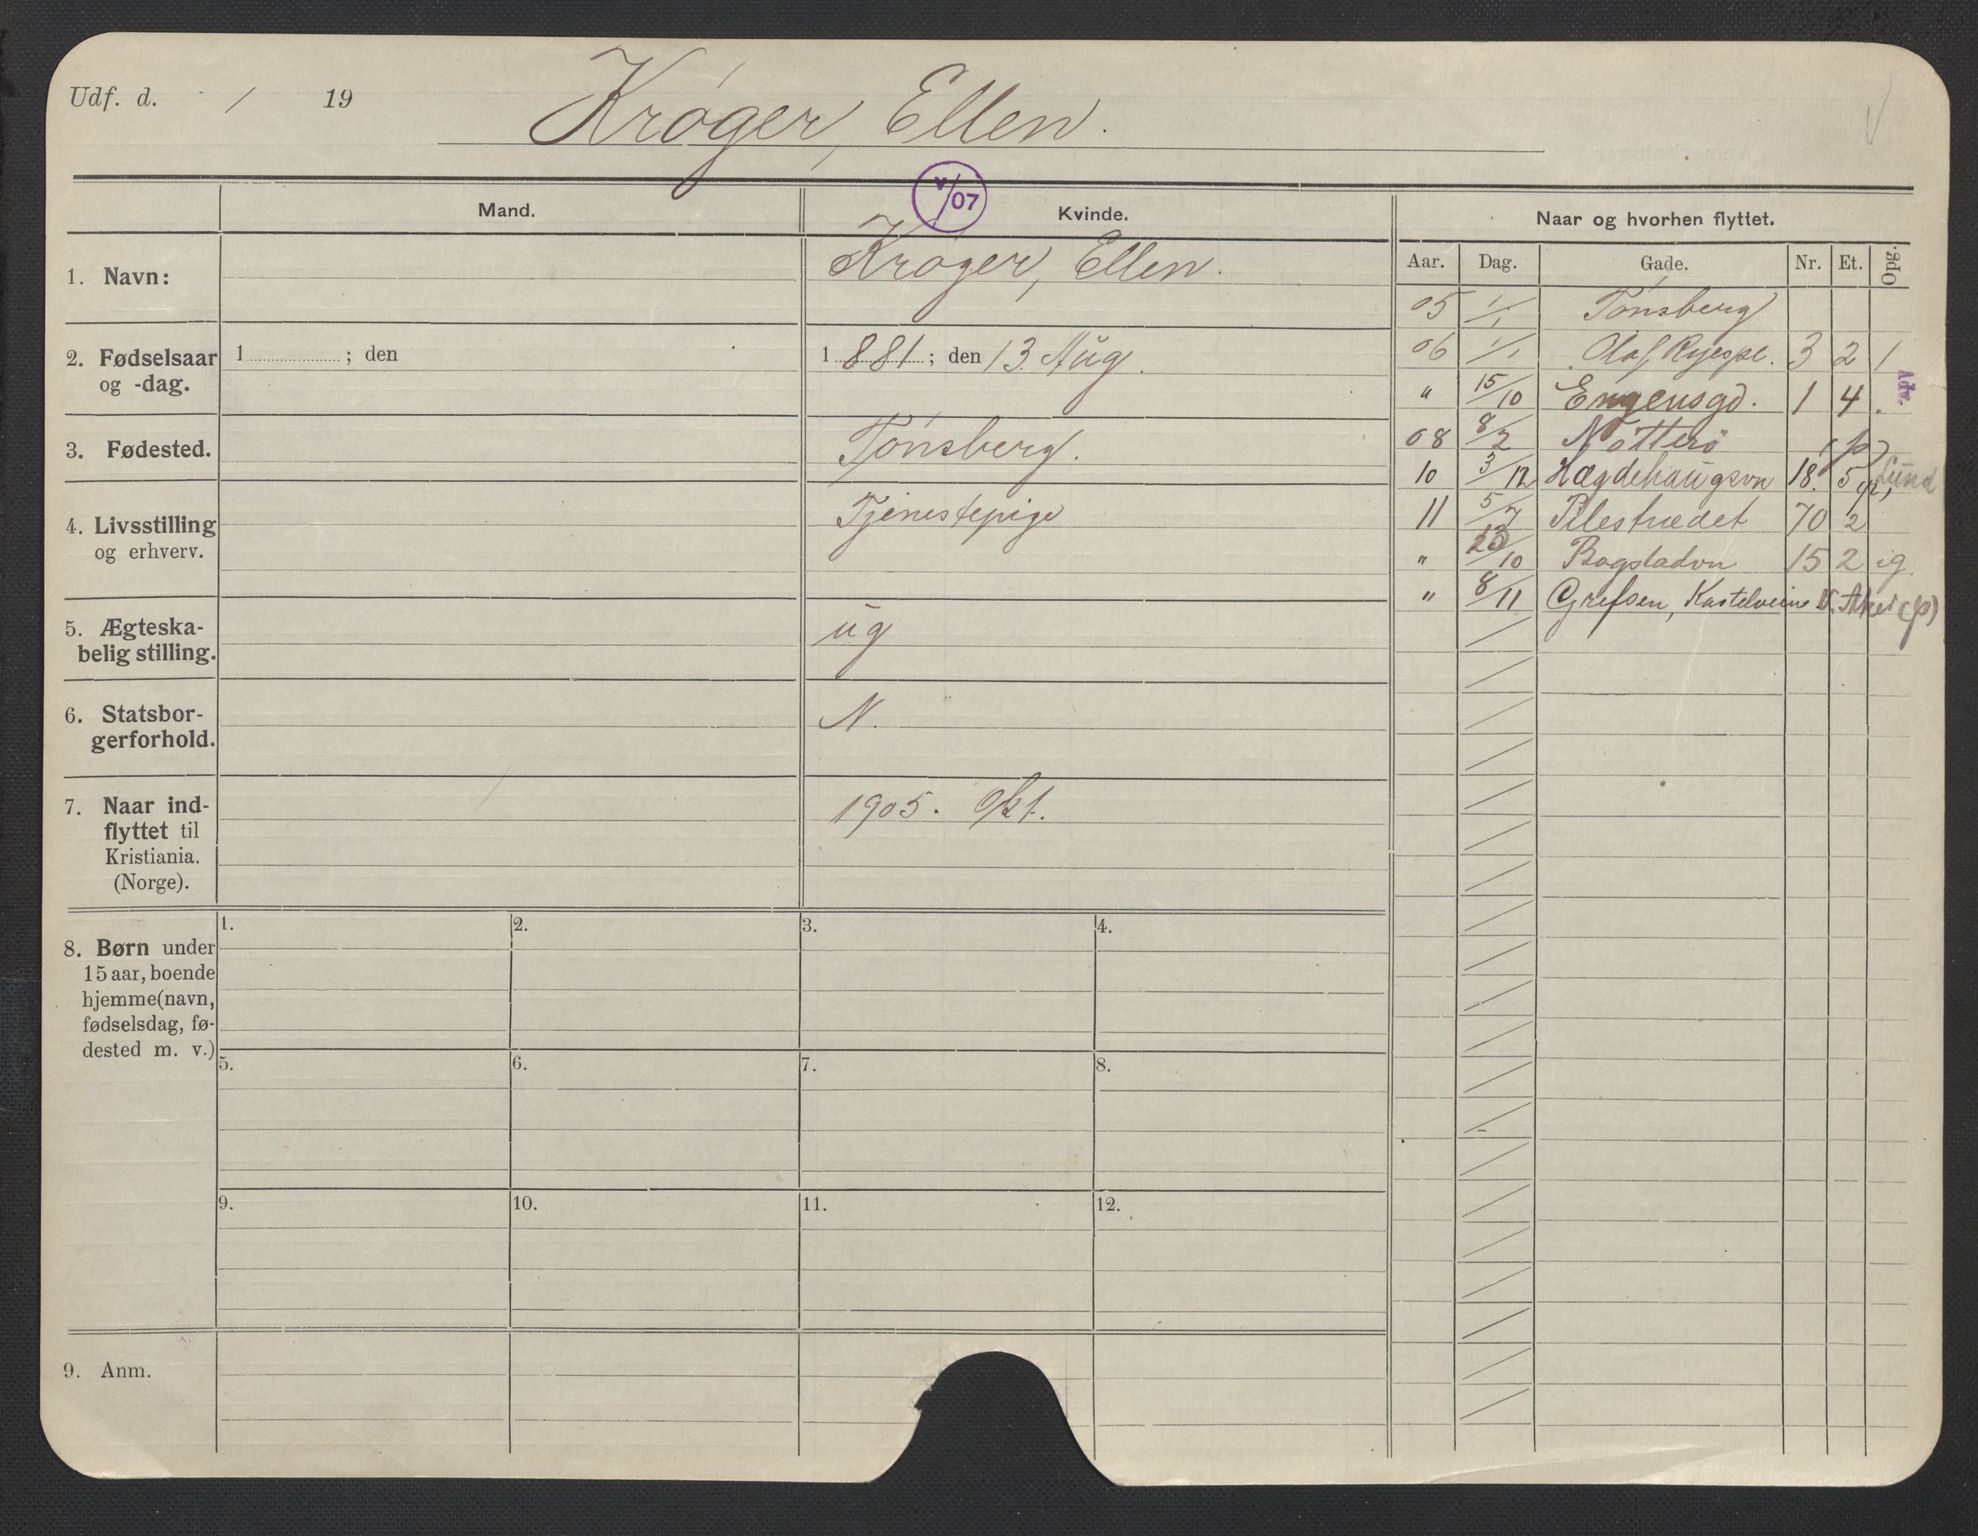 Udf. d. / 19
Krøger, Ellen.
V
v/07
Mand.
Kvinde.
Naar og hvorhen flyttet.
Aar. Dag. Gade. Nr. Et. Opg.
1. Navn:
Krøger, Ellen.
2. Fødselsaar
og -dag.
1 ; den
1 881 ; den 13. Aug.
3. Fødested.
Tønsberg.
4. Livsstilling
og erhverv.
Tjenestepige
5. Ægteska-
belig stilling.
ug
6. Statsbor-
gerforhold.
N.
7. Naar ind-
flyttet til
Kristiania.
(Norge).
1905. Okt.
05 1/1 Tønsberg
06 1/1 Olaf Ryespl. 3 2 1
" 15/10 Engensgd. 1 4 .
Adv.
08 8/2 Nötterö (p)
10 3/12 Hægdehaugsvn 18. 5 Lund
11 5/7 Pilestrædet 70 2
" 23/10 Bogstadvn 15 2 ig
" 8/11 Grefsen, Kastelveien V. Aker (p)
8. Børn under
15 aar, boende
hjemme (navn,
fødselsdag, fø-
dested m. v.)
1. 2. 3. 4.
5. 6. 7. 8.
9. 10. 11. 12.
9. Anm.